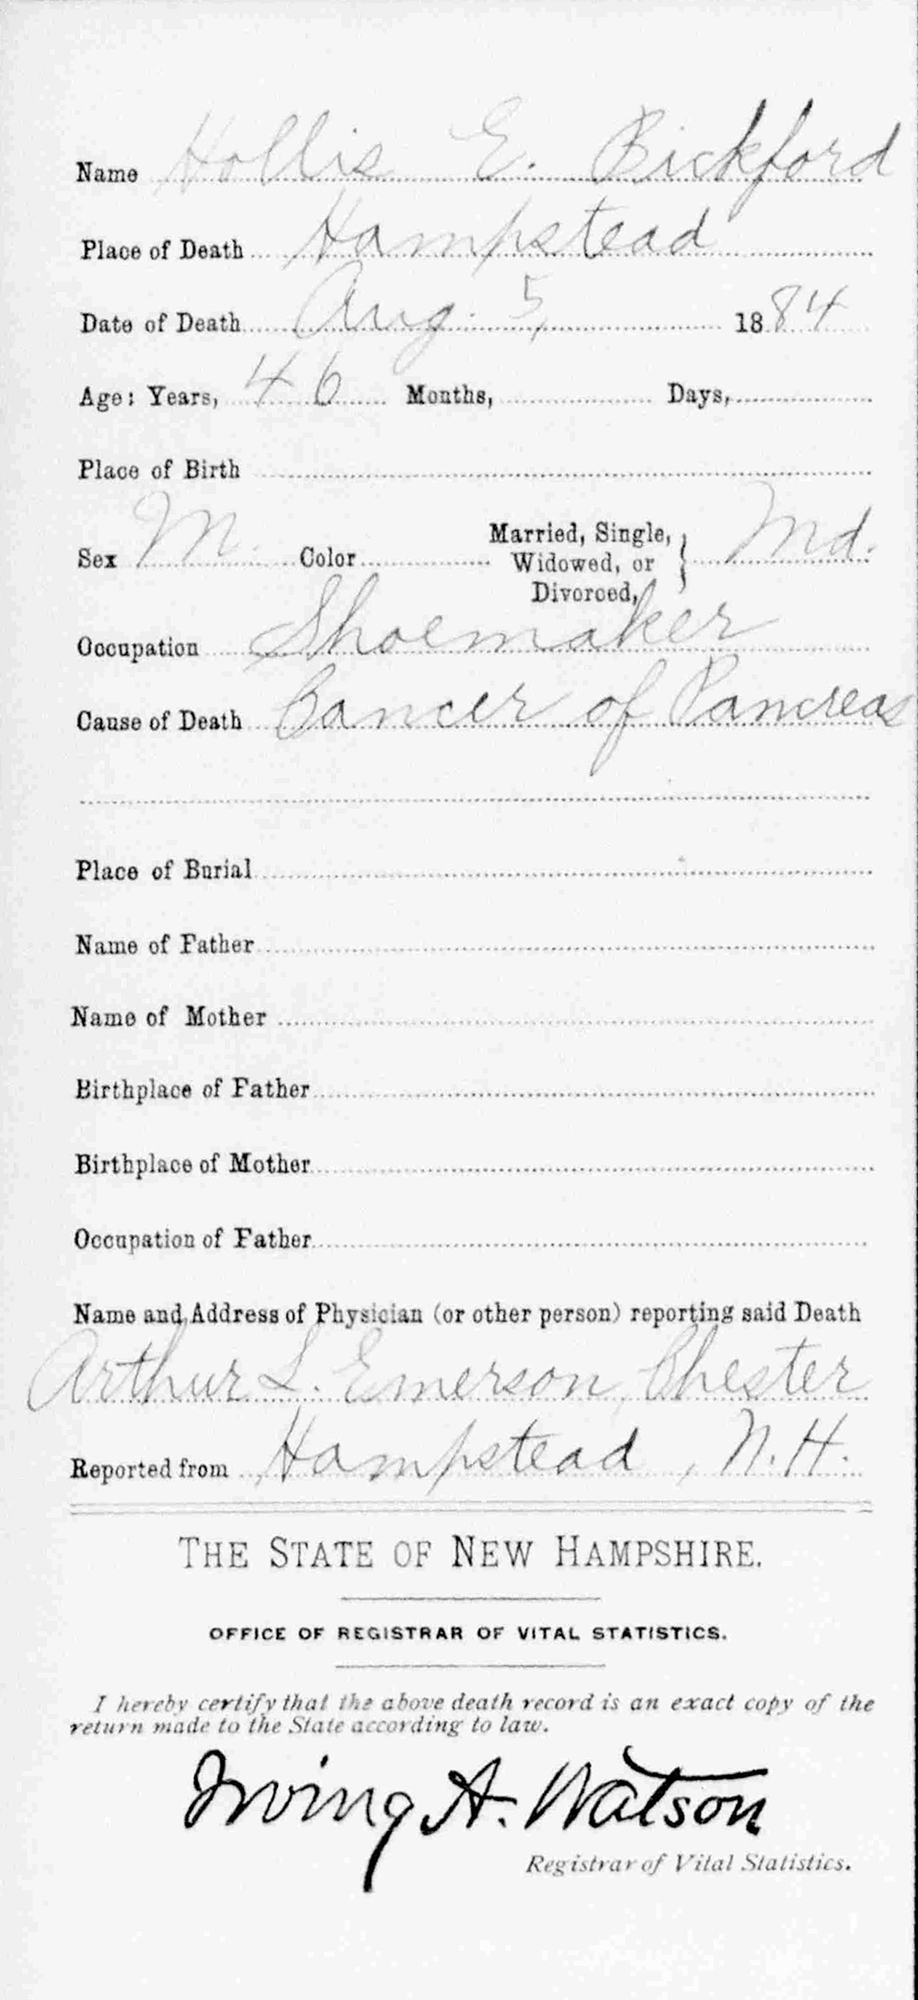 Name Hollis E. Bickford
Place of Death Hampstead
Date of Death Aug. 5, 1884
Age: Years, 46 Months, Days,
Place of Birth
Sex M. Color Married, Single, Widowed, or Divorced, } Md.
Occupation Shoemaker
Cause of Death Cancer of Pancreas
Place of Burial
Name of Father
Name of Mother
Birthplace of Father
Birthplace of Mother
Occupation of Father
Name and Address of Physician (or other person) reporting said Death
Arthur L. Emerson, Chester
Reported from Hampstead, N.H.
THE STATE OF NEW HAMPSHIRE.
OFFICE OF REGISTRAR OF VITAL STATISTICS.
I hereby certify that the above death record is an exact copy of the
return made to the State according to law.
Irving A. Watson
Registrar of Vital Statistics.